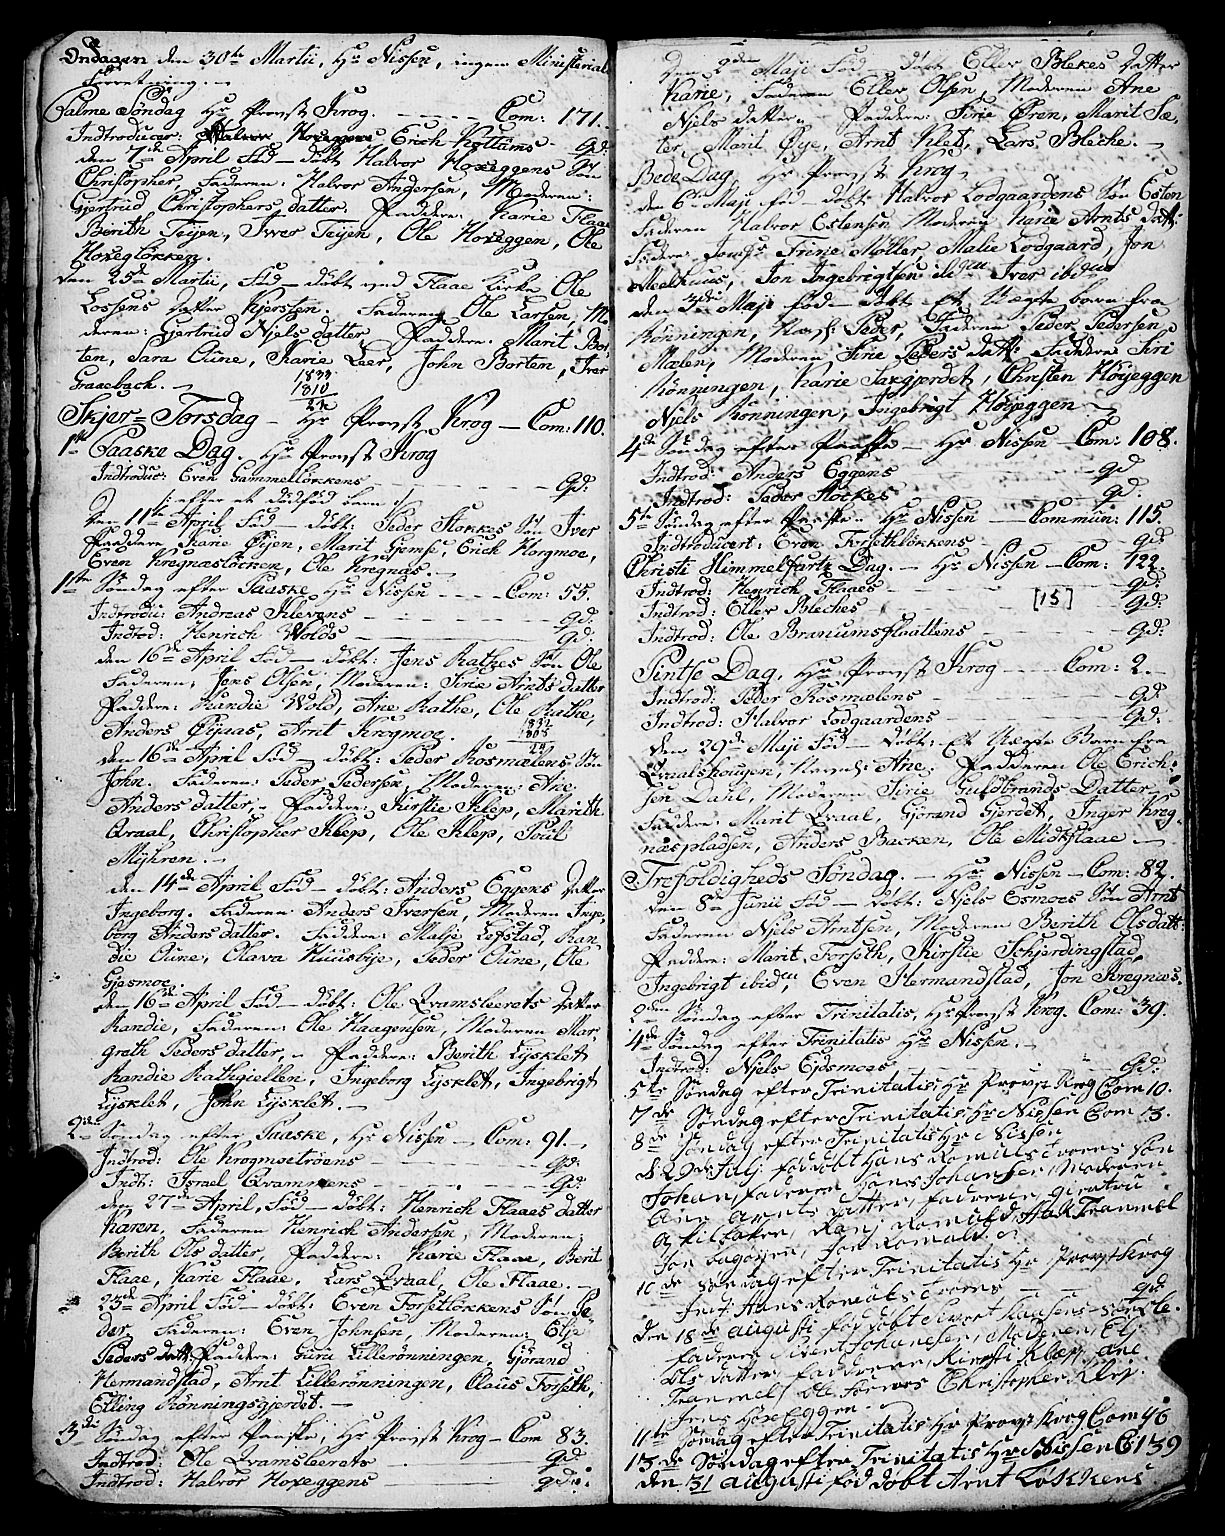 Ondagen den 30te Martii, Hr Nissen, ingen Ministerial
Forretning.
Palme Søndag Hr Provst Krog. Com: 171.
Introducer: Erich Kottums Gd:
den 7de April Fød - døbt Halvor Hoxeggens Søn
Christopher, Faderen: Halvor Andersen, Moderen:
Gjertrud Christophers datter. Faddere: Karie Flaae
Berith Teijen, Iver Teijen, Ole Hoxeggen, Ole
Hoxegløkken.
den 25de Martii, Fød - døbt ved Flaae Kirke Ole
Larsens datter Kjersten. Faderen Ole Larsen, Mo-
deren: Gjertrud Niels datter. Faddere: Marit Bor-
ten, Sara Aune, Karie Leer, John Borten, Iver
Graaebach.
1833
1810
Skjer-Torsdag - Hr Provst Krog - Com: 110.
1te Paaske Dag. Hr Provst Krog
Indtroduc: Even Gammelløkkens Gd:
/: efter et dødfød barn :/
den 11te April Fød - døbt: Peder Flokkes Søn Iver
Faddere Karie Øijen, Marit Gjemse, Erich Horgmoe,
Even Kregnasløcken, Ole Kregnas.
1ste Søndag efter Paaske Hr Nissen Com: 55.
Indtroduc: Andreas Klevens Gd:
Indtrod: Henrich Wolds Gd:
den 16de April Fød - døbt: Jens Rathes Søn Ole
Faderen: Jens Olsen, Moderen: Sirie Arnts datter
Faddere: Randie Wold, Ane Rathe, Ole Rathe,
Anders Øijaas, Arnt Krogmoe.
den 16de April Fød - døbt: Peder Rosmælens Søn
John. Faderen: Peder Pedersen, Moderen: Ane
Anders datter. Faddere: Kirstie Klep, Marith
Qvaal, Christopher Klep, Ole Klep, Poul
Myhren.
den 14de April Fød - døbt: Anders Eggens datter
Ingeborg. Faderen Anders Iversen, Moderen Inge-
borg Anders datter. Faddere: Malje Lofstad, Ran-
die Aune, Olava Huusbye, Peder Aune, Ole
Gjesmoe.
den 16de April Fød - døbt: Ole Qvamsleerets datter
Randie, Faderen: Ole Haagensen, Moderen Mar-
greth Peders datter, Faddere: Berith Lysklet
Randie Rathgiellen, Ingeborg Lysklet, Ingebrigt
Lysklet, John Lysklett.
2den Søndag efter Paaske, Hr Nissen - Com: 91.
Indtrod: Ole Krogmoetrøens Gd:
Indt: Israel Qvammens Gd:
den 27de April, Fød - døbt: Henrich Flaaes datter
Karen, Faderen Henrich Andersen, Moderen
Berith Ols datter, Faddere: Karie Flaae, Berit
Flaae, Karie Flaae, Lars Qvaal, Ole Flaae.
23de April Fød - døbt: Even Forsetløkkens Søn Pe-
der, Faderen: Even Johnsen, Moderen: Elje
Peders datt: Faddere: Guru Lillerønningen, Gjørand
Hermandstad, Arnt Lillerønningen, Claus Forseth,
Elling Rønningsgjerdet.
3de Søndag efter Paaske, Hr Provst Krog - Com 83.
Indtrod: Ole Qvamsleerets Gd:
Indtrod: Halvor Hoxeggens Gd:
den 2den Maji Fød - døbt Eller Blekes datter
Karie, Faderen Eller Olsen, Moderen Ane
Niels datter. Faddere: Sirie Øren, Marit Sæ-
ter, Marit Øye, Arnt Klet, Lars Bleche.
Bede Dag, Hr Provst Krog
den 6te Maji fød - døbt Halvor Lodgaardens Søn Esten
Faderen Halvor Estensen Moderen Karie Arnts datt:
Faddere Trine Møller, Malie Lodgaard, Jon
Meelhuus, Jon Ingebrigtsen Iver ibidem
den 3die Maji Fød - døbt Et Uægte barn fra
Rønningen, Peder, Faderen Peder Pedersen
Mælen, Moderen Sirie Peders datt: Faddere Siri
Rønningen, Karie Saxgjerdet, Christen Høyeggen
Niels Rønningen, Ingebrigt Høyeggen
4de Søndag efter Paaske - Hr Nissen - Com: 108.
Indtrod: Anders Eggens Gd
Indtrod: Peder Flockes Gd.
5te Søndag efter Paaske - Hr Nissen - Commun: 115.
Indtroducert: Even Forsethløkkens Gd:
Christi Himmelfarts Dag. - Hr Nissen - Com: 122.
Indtrod: Henrich Flaaes Gd:
Indtrod: Eller Bleches [15] Gd:
Indtrod: Ole Branumsflaattens Gd:
Pintse Dag, Hr Provst Krog Com: 2.
Indtrod: Peder Rosmælens Gd
Indtrod: Halvor Lodgaardens Gd:
den 29de Maji Fød - Døbt: Et Uægte Barn fra
Qvaalshougen, Ane. Faderen Ole Erich-
sen Dahl, Moderen Sirie Guldbrands Datter
Faddere Marit Qvaal, Gjørand Gjerdet, Inger Kreg-
næspladsen, Anders Backen, Ole Midtflaae
Trefoldigheds Søndag. - Hr Nissen - Com: 82.
den 8de Junii Fød - Døbt: Niels Esmoes Søn Arnt
Faderen Niels Arntsen, Moderen Berith Olsdatt:
Faddere: Marit Forseth, Kirstie Schjerdingstad,
Ingebrigt ibidem, Even Hermandstad, Jon Kregnæs.
2den Søndag efter Trinitatis, Hr Provst Krog. Com: 39.
4de Søndag efter Trinitatis Hr Nissen.
Indtrod: Niels Eidsmoes Gd:
5te Søndag efter Trinitatis Hr Provst Krog Com 10.
7de Søndag efter Trinitatis Hr Nissen Com 13.
8de Søndag efter Trinitatis Hr Nissen
d 29de Julj fød døbt Hans Romulstrøens Søn
Johan, faderen Hans Johansen Moderen
Ane Arnts datter, fadderne giertru
Romuld, Trammel
Jon fagøyen, Jon Romuld.
10de Søndag efter Trinitatis Hr Provst Krog
Int. Hans Romolstrøens Gd:
den 18de augusti fød døbt
faderen Sivert Johansen, Moderen Elj
Ols datter, faddrene Kirsti Klep, ane
Trammel, Ole Christopher Klep
Jens Høxeggen.
11te Søndag efter Trinitatis Hr Provst Krog Com 46
13de Søndag efter Trinitatis Hr Nissen C 139
den 31 augusti fød døbt Arnt Løkkens